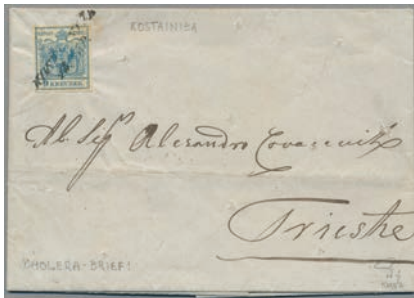 KOSTAINIZA
KREUZER
Al Sigr Alesandro Covacevich
Trieste
CHOLERA-BRIEF!